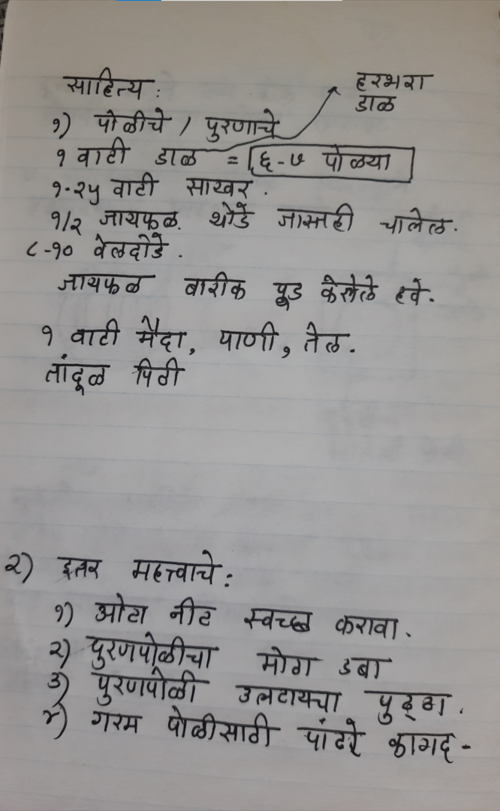 साहित्य :
हरभरा
डाळ
१) पोळीचे / पुरणाचे
१ वाटी डाळ = ६-७ पोळ्या
१.२५ वाटी साखर.
१/२ जायफळ. थोडे जास्तही चालेल.
८-१० वेलदोडे.
जायफळ बारीक पूड केलेले हवे.
१ वाटी मैदा, पाणी, तेल.
तांदूळ पिठी
२) इतर महत्त्वाचे :
१) ओटा नीट स्वच्छ करावा.
२) पुरणपोळीचा मोठा डबा
३) पुरणपोळी उलटायचा पुठ्ठा.
४) गरम पोळीसाठी पांढरे कागद -